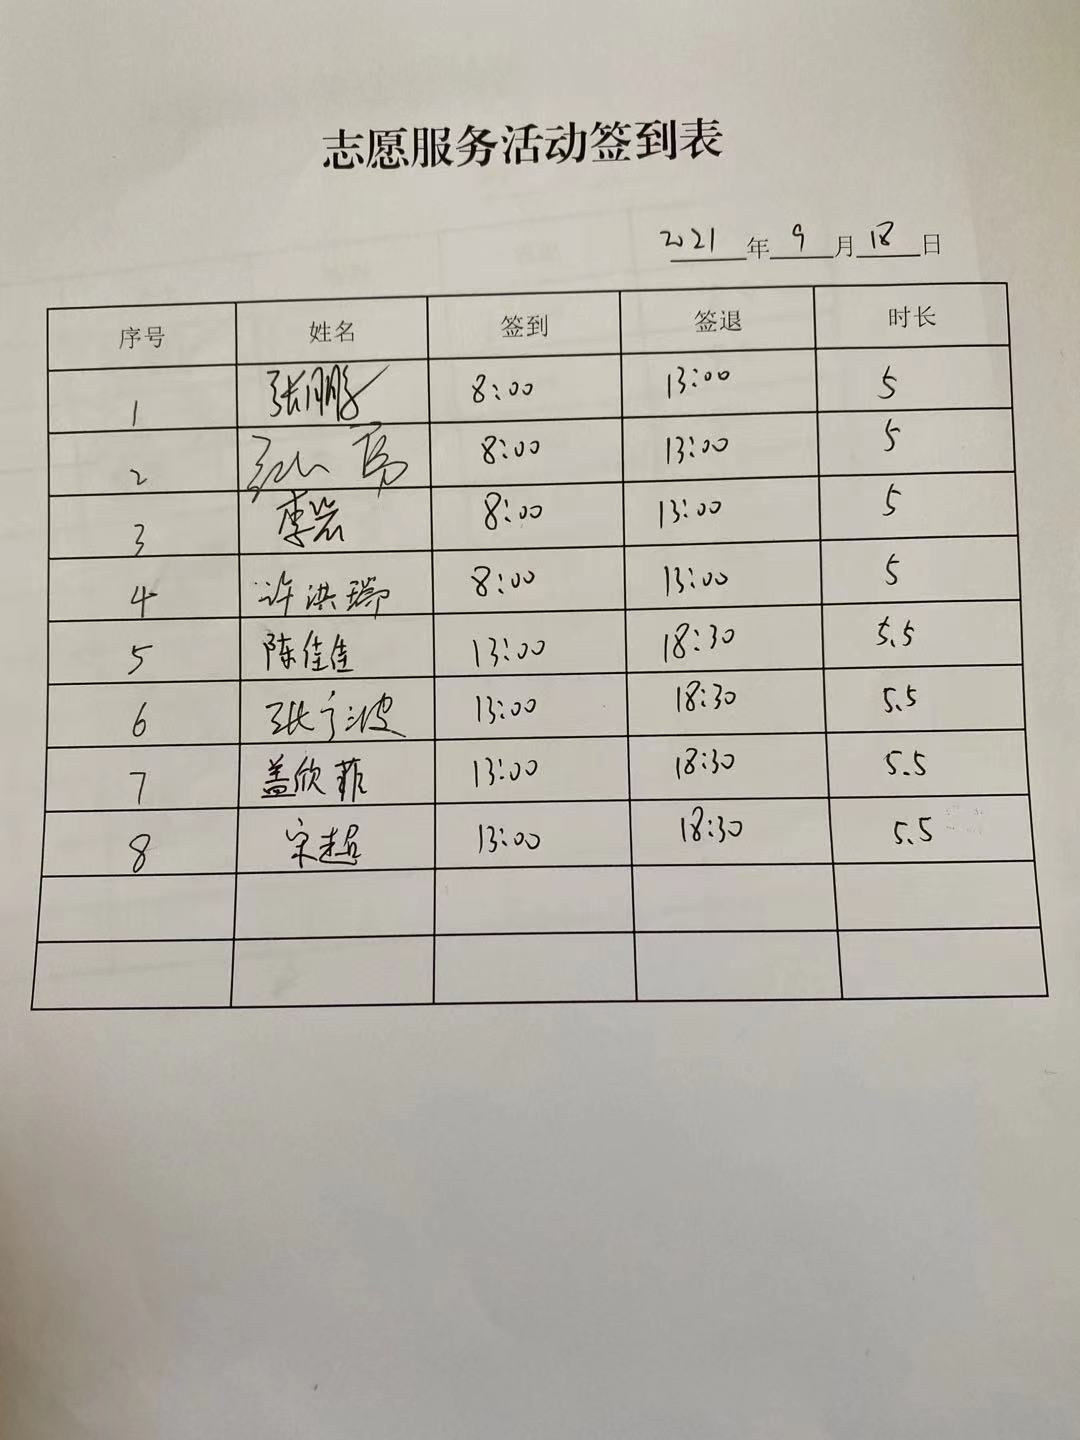 志愿服务活动签到表
2021年9月18日
序号 姓名 签到 签退 时长
1 张鹏 8:00 13:00 5
2 8:00 13:00 5
3 李岩 8:00 13:00 5
4 许洪瑞 8:00 13:00 5
5 陈佳佳 13:00 18:30 5.5
6 张宁波 13:00 18:30 5.5
7 盖欣菲 13:00 18:30 5.5
8 宋超 13:00 18:30 5.5